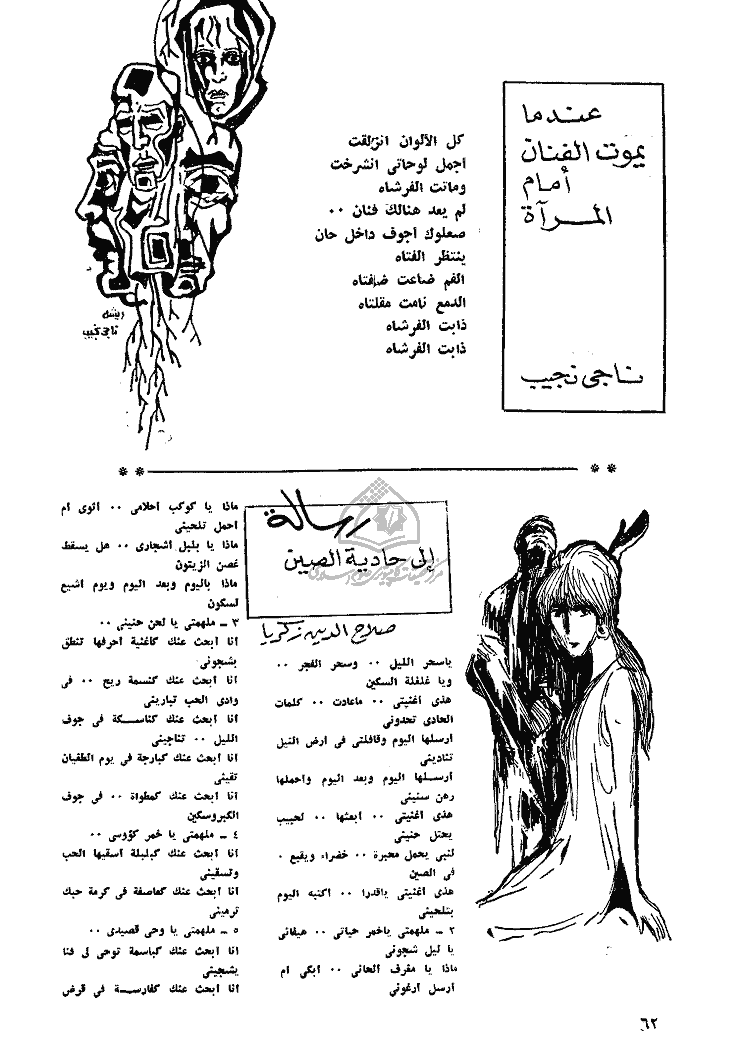 عندما
يموت الفنان
أمام
المرآة
ناجى نجيب
كل الألوان انزلقت
اجمل لوحاتى انشرخت
وماتت الفرشاه
لم يعد هنالك فنان ٠٠
صعلوك أجوف داخل حان
ينتظر الفتاه
الفم ضاعت ضفتاه
الدمع نامت مقلتاه
ذابت الفرشاه
ذابت الفرشاه
ريشة
ناجى نجيب
رسالة
إلى حادية الصين
صلاح الدين زكريا
ياسحر الليل ٠٠ وسحر الفجر ٠٠
ويا غلغلة السكين
هذى أغنيتى ٠٠ ماعادت ٠٠ كلمات
الحادى تحدونى
أرسلها اليوم وقافلتى فى ارض النيل
تنادينى
أرسلها اليوم وبعد اليوم واحملها
رهن سنينى
هذى أغنيتى ٠٠ أبعثها ٠٠ لحبيب
يحتل حنينى
لنبى يحمل محبرة ٠٠ خضراء ويقبع ٠
فى الصين
هذى أغنيتى ياقدرا ٠٠ اكتبه اليوم
بتلحينى
٢ ــ ملهمتى ياخمر حياتى ٠٠ هيفائى
يا ليل شجونى
ماذا يا مقرف الحانى ٠٠ أبكى أم
أرسل أرغونى
ماذا يا كوكب أحلامى ٠٠ أثوى أم
أحمل تلحينى
ماذا يا بلبل أشجارى ٠٠ هل يسقط
غصن الزيتون
ماذا باليوم وبعد اليوم ويوم أشيع
لسكون
٣ ــ ملهمتى يا لحن حنينى ٠٠
أنا أبحث عنك كأغنية أحرفها تنطق
بشجونى
أنا أبحث عنك كنسمة ريح ٠٠ فى
وادى الحب تبارينى
أنا أبحث عنك كناسكة فى جوف
الليل ٠٠ تناجينى
أنا أبحث عنك كبارجة فى يوم الطغيان
تقينى
أنا أبحث عنك كمطواة ٠٠ فى جوف
الكيروسكين
٤ ــ ملهمتى يا خمر كؤوسى ٠٠
أنا أبحث عنك كبلبلة أسقيها الحب
وتسقينى
أنا أبحث عنك كعاصفة فى كرمة حبك
ترمينى
٥ ــ ملهمتى يا وحى قصيدى ٠٠
أنا أبحث عنك كباسمة توحى لى فنا
يشجينى
أنا أبحث عنك كفارسة فى قرض
٦٢